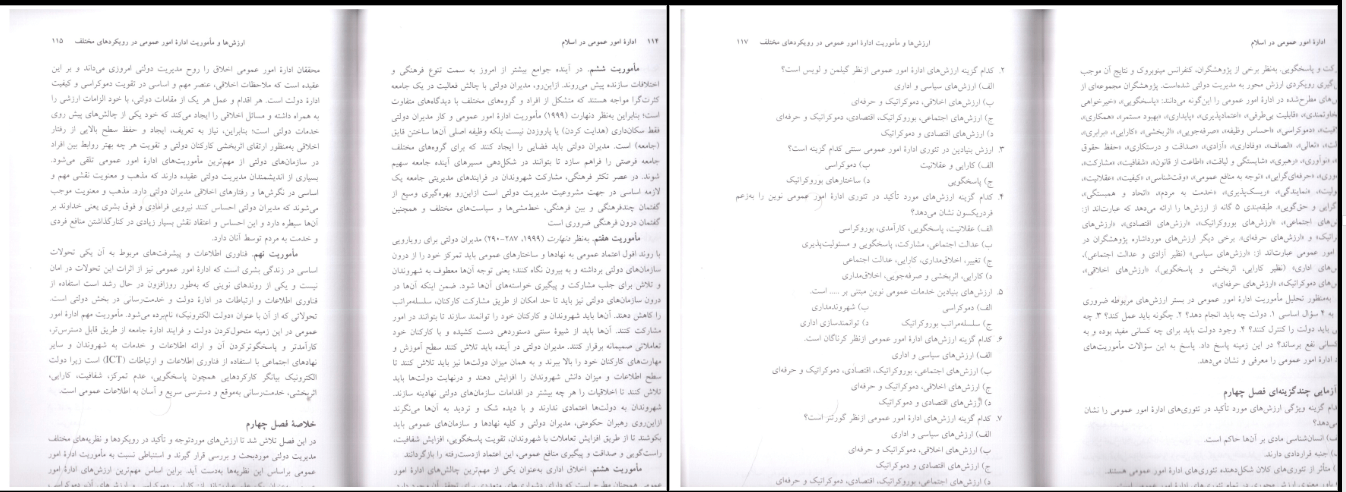 ۱۱۴ ادارهٔ امور عمومی در اسلام
مأموریت ششم. در آینده جوامع بیشتر از امروز به سمت تنوع فرهنگی و
اختلافات سازنده پیش می‌روند. ازاین‌رو، مدیران دولتی با چالش فعالیت در یک جامعه
کثرت‌گرا مواجه هستند که متشکل از افراد و گروه‌های مختلف با دیدگاه‌های متفاوت
است؛ بنابراین به‌نظر دنهارت (۱۹۹۹) مأموریت ادارهٔ امور عمومی و کار مدیران دولتی
فقط سکان‌داری (هدایت کردن) یا پاروزدن نیست بلکه وظیفه اصلی آن‌ها ساختن قایق
(جامعه) است. مدیران دولتی باید فضایی را ایجاد کنند که برای گروه‌های مختلف
جامعه فرصتی را فراهم سازد تا بتوانند در شکل‌دهی مسیرهای آینده جامعه سهیم
شوند. در عصر تکثر فرهنگی، مشارکت شهروندان در فرایندهای مدیریتی جامعه یک
لازمه اساسی در جهت مشروعیت مدیریت دولتی است ازاین‌رو بهره‌گیری وسیع از
گفتمان چندفرهنگی و بین فرهنگی، خط‌مشی‌ها و سیاست‌های مختلف و همچنین
گفتمان درون فرهنگی ضروری است
مأموریت هفتم. به‌نظر دنهارت (۱۹۹۹، ۲۸۷-۲۹۰) مدیران دولتی برای رویارویی
با روند افول اعتماد عمومی به نهادها و ساختارهای عمومی باید تمرکز خود را از درون
سازمان‌های دولتی برداشته و به بیرون نگاه کنند؛ یعنی توجه آن‌ها معطوف به شهروندان
و تلاش برای جلب مشارکت و پیگیری خواسته‌های آن‌ها شود. ضمن اینکه آن‌ها در
درون سازمان‌های دولتی نیز باید تا حد امکان از طریق مشارکت کارکنان، سلسله‌مراتب
را کاهش دهند. آن‌ها باید شهروندان و کارکنان خود را توانمند سازند تا بتوانند در امور
مشارکت کنند. آن‌ها باید از شیوهٔ سنتی دستوردهی دست کشیده و با کارکنان خود
تعاملاتی صمیمانه برقرار کنند. مدیران دولتی در آینده باید تلاش کنند سطح آموزش و
مهارت‌های کارکنان خود را بالا ببرند و به همان میزان دولت‌ها نیز باید تلاش کنند تا
سطح اطلاعات و میزان دانش شهروندان را افزایش دهند و درنهایت دولت‌ها باید
تلاش کنند تا اخلاقیات را هر چه بیشتر در اقدامات سازمان‌های دولتی نهادینه سازند.
شهروندان به دولت‌ها اعتمادی ندارند و با دیده شک و تردید به آن‌ها می‌نگرند
ازاین‌روی رهبران حکومتی، مدیران دولتی و کلیه نهادها و سازمان‌های عمومی باید
بکوشند تا از طریق افزایش تعاملات با شهروندان، تقویت پاسخگویی، افزایش شفافیت،
راست‌گویی و صداقت و پیگیری منافع عمومی، این اعتماد ازدست‌رفته را بازگردانند.
مأموریت هشتم. اخلاق اداری به‌عنوان یکی از مهم‌ترین چالش‌های ادارهٔ امور
ارزش‌ها و مأموریت ادارهٔ امور عمومی در رویکردهای مختلف ۱۱۵
محققان ادارهٔ امور عمومی اخلاق را روح مدیریت دولتی امروزی می‌داند و بر این
عقیده است که ملاحظات اخلاقی، عنصر مهم و اساسی در تقویت دموکراسی و کیفیت
ادارهٔ دولت است. هر اقدام و عمل هر یک از مقامات دولتی، با خود الزامات ارزشی را
به همراه داشته و مسائل اخلاقی را ایجاد می‌کند که خود یکی از چالش‌های پیش روی
خدمات دولتی است؛ بنابراین، نیاز به تعریف، ایجاد و حفظ سطح بالایی از رفتار
اخلاقی به‌منظور ارتقای اثربخشی کارکنان دولتی و تقویت هر چه بهتر روابط بین افراد
در سازمان‌های دولتی از مهم‌ترین مأموریت‌های ادارهٔ امور عمومی تلقی می‌شود.
بسیاری از اندیشمندان مدیریت دولتی عقیده دارند که مذهب و معنویت نقشی مهم و
اساسی در نگرش‌ها و رفتارهای اخلاقی مدیران دولتی دارد. مذهب و معنویت موجب
می‌شوند که مدیران دولتی احساس کنند نیرویی فرافادی و فوق بشری یعنی خداوند بر
آن‌ها سیطره دارد و این احساس و اعتقاد نقش بسیار زیادی در کنارگذاشتن منافع فردی
و خدمت به مردم توسط آنان دارد.
مأموریت نهم. فناوری اطلاعات و پیشرفت‌های مربوط به آن یکی تحولات
اساسی در زندگی بشری است که ادارهٔ امور عمومی نیز از اثرات این تحولات در امان
نیست و یکی از روندهای نوینی که به‌طور روزافزون در حال رشد است استفاده از
فناوری اطلاعات و ارتباطات در ادارهٔ دولت و خدمت‌رسانی در بخش دولتی است.
تحولاتی که از آن با عنوان «دولت الکترونیک» نام‌برده می‌شود. مأموریت مهم ادارهٔ امور
عمومی در این زمینه متحول‌کردن دولت و فرایند ادارهٔ جامعه از طریق قابل دسترس‌تر،
کارآمدتر و پاسخگوترکردن آن و ارائه اطلاعات و خدمات به شهروندان و سایر
نهادهای اجتماعی با استفاده از فناوری اطلاعات و ارتباطات (ICT) است زیرا دولت
الکترونیک بیانگر کارکردهایی همچون پاسخگویی، عدم تمرکز، شفافیت، کارایی،
اثربخشی، خدمت‌رسانی به‌موقع و دسترسی سریع و آسان به اطلاعات عمومی است.
خلاصهٔ فصل چهارم
در این فصل تلاش شد تا ارزش‌های موردتوجه و تأکید در رویکردها و نظریه‌های مختلف
مدیریت دولتی موردبحث و بررسی قرار گیرند و استنباطی نسبت به مأموریت ادارهٔ امور
عمومی براساس این نظریه‌ها به‌دست آید. براین اساس مهم‌ترین ارزش‌های ادارهٔ امور
ادارهٔ امور عمومی در اسلام
و پاسخگویی، به‌نظر برخی از پژوهشگران، کنفرانس مینوبروک و نتایج آن موجب
رویکردی ارزش محور به مدیریت دولتی شده‌است. پژوهشگران مجموعه‌ای از
مطرح‌شده در ادارهٔ امور عمومی را این‌گونه می‌دانند: «پاسخگویی»، «خیرخواهی
«قابلیت بی‌طرفی»، «اعتمادپذیری»، «پایداری»، «بهبود مستمر»، «همکاری»،
«دموکراسی»، «احساس وظیفه»، «صرفه‌جویی»، «اثربخشی»، «کارایی»، «برابری»،
«تعالی»، «انصاف»، «وفاداری»، «آزادی»، «صداقت و درستکاری»، «حفظ حقوق
«نوآوری»، «رهبری»، «شایستگی و لیاقت»، «اطاعت از قانون»، «شفافیت»، «مشارکت»،
«حرفه‌ای‌گرایی»، «توجه به منافع عمومی»، «وقت‌شناسی»، «کیفیت»، «عقلانیت»،
«نمایندگی»، «ریسک‌پذیری»، «خدمت به مردم»، «اتحاد و همبستگی»،
و حق‌گویی». طبقه‌بندی ۵ گانه از ارزش‌ها را ارائه می‌دهد که عبارت‌اند از:
اجتماعی»، «ارزش‌های بوروکراتیک»، «ارزش‌های اقتصادی»، «ارزش‌های
و «ارزش‌های حرفه‌ای». برخی دیگر ارزش‌های مورداشاره پژوهشگران در
امور عمومی عبارت‌اند از: «ارزش‌های سیاسی» (نظیر آزادی و عدالت اجتماعی)،
اداری» (نظیر کارایی، اثربخشی و پاسخگویی)، «ارزش‌های اخلاقی»،
دموکراتیک»، «ارزش‌های حرفه‌ای».
به‌منظور تحلیل مأموریت ادارهٔ امور عمومی در بستر ارزش‌های مربوطه ضروری
به ۴ سؤال اساسی ۱. دولت چه باید انجام دهد؟ ۲. چگونه باید عمل کند؟ ۳. چه
باید دولت را کنترل کند؟ ۴. وجود دولت باید برای چه کسانی مفید بوده و به
نفع برساند؟» در این زمینه پاسخ داد. پاسخ به این سؤالات مأموریت‌های
ادارهٔ امور عمومی را معرفی و نشان می‌دهد.
چندگزینه‌ای فصل چهارم
گزینه ویژگی ارزش‌های مورد تأکید در تئوری‌های ادارهٔ امور عمومی را نشان
انسان‌شناسی مادی بر آن‌ها حاکم است.
جنبه قراردادی دارند.
متأثر از تئوری‌های کلان شکل‌دهنده تئوری‌های ادارهٔ امور عمومی هستند.
ارزش‌ها و مأموریت ادارهٔ امور عمومی در رویکردهای مختلف ۱۱۷
۲. کدام گزینه ارزش‌های ادارهٔ امور عمومی ازنظر گیلمن و لویس است؟
الف) ارزش‌های سیاسی و اداری
ب) ارزش‌های اخلاقی، دموکراتیک و حرفه‌ای
ج) ارزش‌های اجتماعی، بوروکراتیک، اقتصادی، دموکراتیک و حرفه‌ای
د) ارزش‌های اقتصادی و دموکراتیک
۳. ارزش بنیادین در تئوری ادارهٔ امور عمومی سنتی کدام گزینه است؟
الف) کارایی و عقلانیت ب) دموکراسی
ج) پاسخگویی د) ساختارهای بوروکراتیک
۴. کدام گزینه ارزش‌های مورد تأکید در تئوری ادارهٔ امور عمومی نوین را به‌زعم
فردریکسون نشان می‌دهد؟
الف) عقلانیت، پاسخگویی، کارآمدی، بوروکراسی
ب) عدالت اجتماعی، مشارکت، پاسخگویی و مسئولیت‌پذیری
ج) تغییر، اخلاق‌مداری، کارایی، عدالت اجتماعی
د) کارایی، اثربخشی و صرفه‌جویی، اخلاق‌مداری
۵. ارزش‌های بنیادین خدمات عمومی نوین مبتنی بر ..... است.
الف) دموکراسی ب) شهروندمداری
ج) سلسله‌مراتب بوروکراتیک د) توانمندسازی اداری
۶. کدام گزینه ارزش‌های ادارهٔ امور عمومی ازنظر کرناگان است.
الف) ارزش‌های سیاسی و اداری
ب) ارزش‌های اجتماعی، بوروکراتیک، اقتصادی، دموکراتیک و حرفه‌ای
ج) ارزش‌های اخلاقی، دموکراتیک و حرفه‌ای
د) ارزش‌های اقتصادی و دموکراتیک
۷. کدام گزینه ارزش‌های ادارهٔ امور عمومی ازنظر گورتنر است؟
الف) ارزش‌های سیاسی و اداری
ب) ارزش‌های اخلاقی، دموکراتیک و حرفه‌ای
ج) ارزش‌های اقتصادی و دموکراتیک
د) ارزش‌های اجتماعی، بوروکراتیک، اقتصادی، دموکراتیک و حرفه‌ای